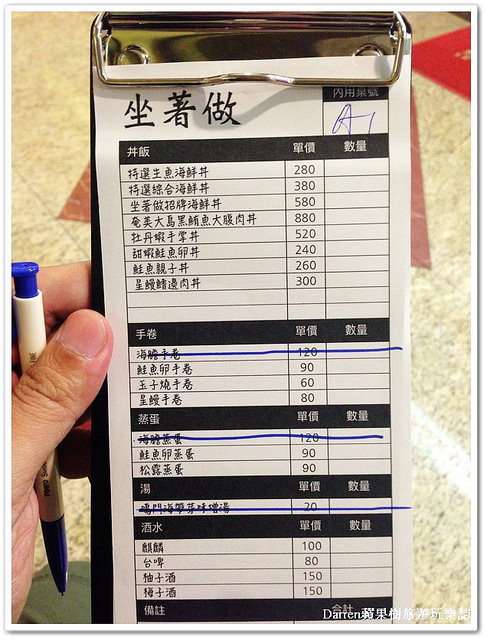 坐著做
內用桌號
A1
丼飯 單價 數量
特選生魚海鮮丼 280
特選綜合海鮮丼 380
坐著做招牌海鮮丼 580
奄美大島黑鮪魚大腹肉丼 880
牡丹蝦手掌丼 520
甜蝦鮭魚卵丼 240
鮭魚親子丼 260
星鰻鰭邊肉丼 300
手卷 單價 數量
海膽手卷 120
鮭魚卵手卷 90
玉子燒手卷 60
星鰻手卷 80
蒸蛋 單價 數量
海膽蒸蛋 120
鮭魚卵蒸蛋 90
松露蒸蛋 90
湯 單價 數量
鳴門海帶芽味增湯 20
酒水 單價 數量
麒麟 100
台啤 80
柚子酒 150
梅子酒 150
備註 合計
Darren蘋果樹旅遊玩樂誌